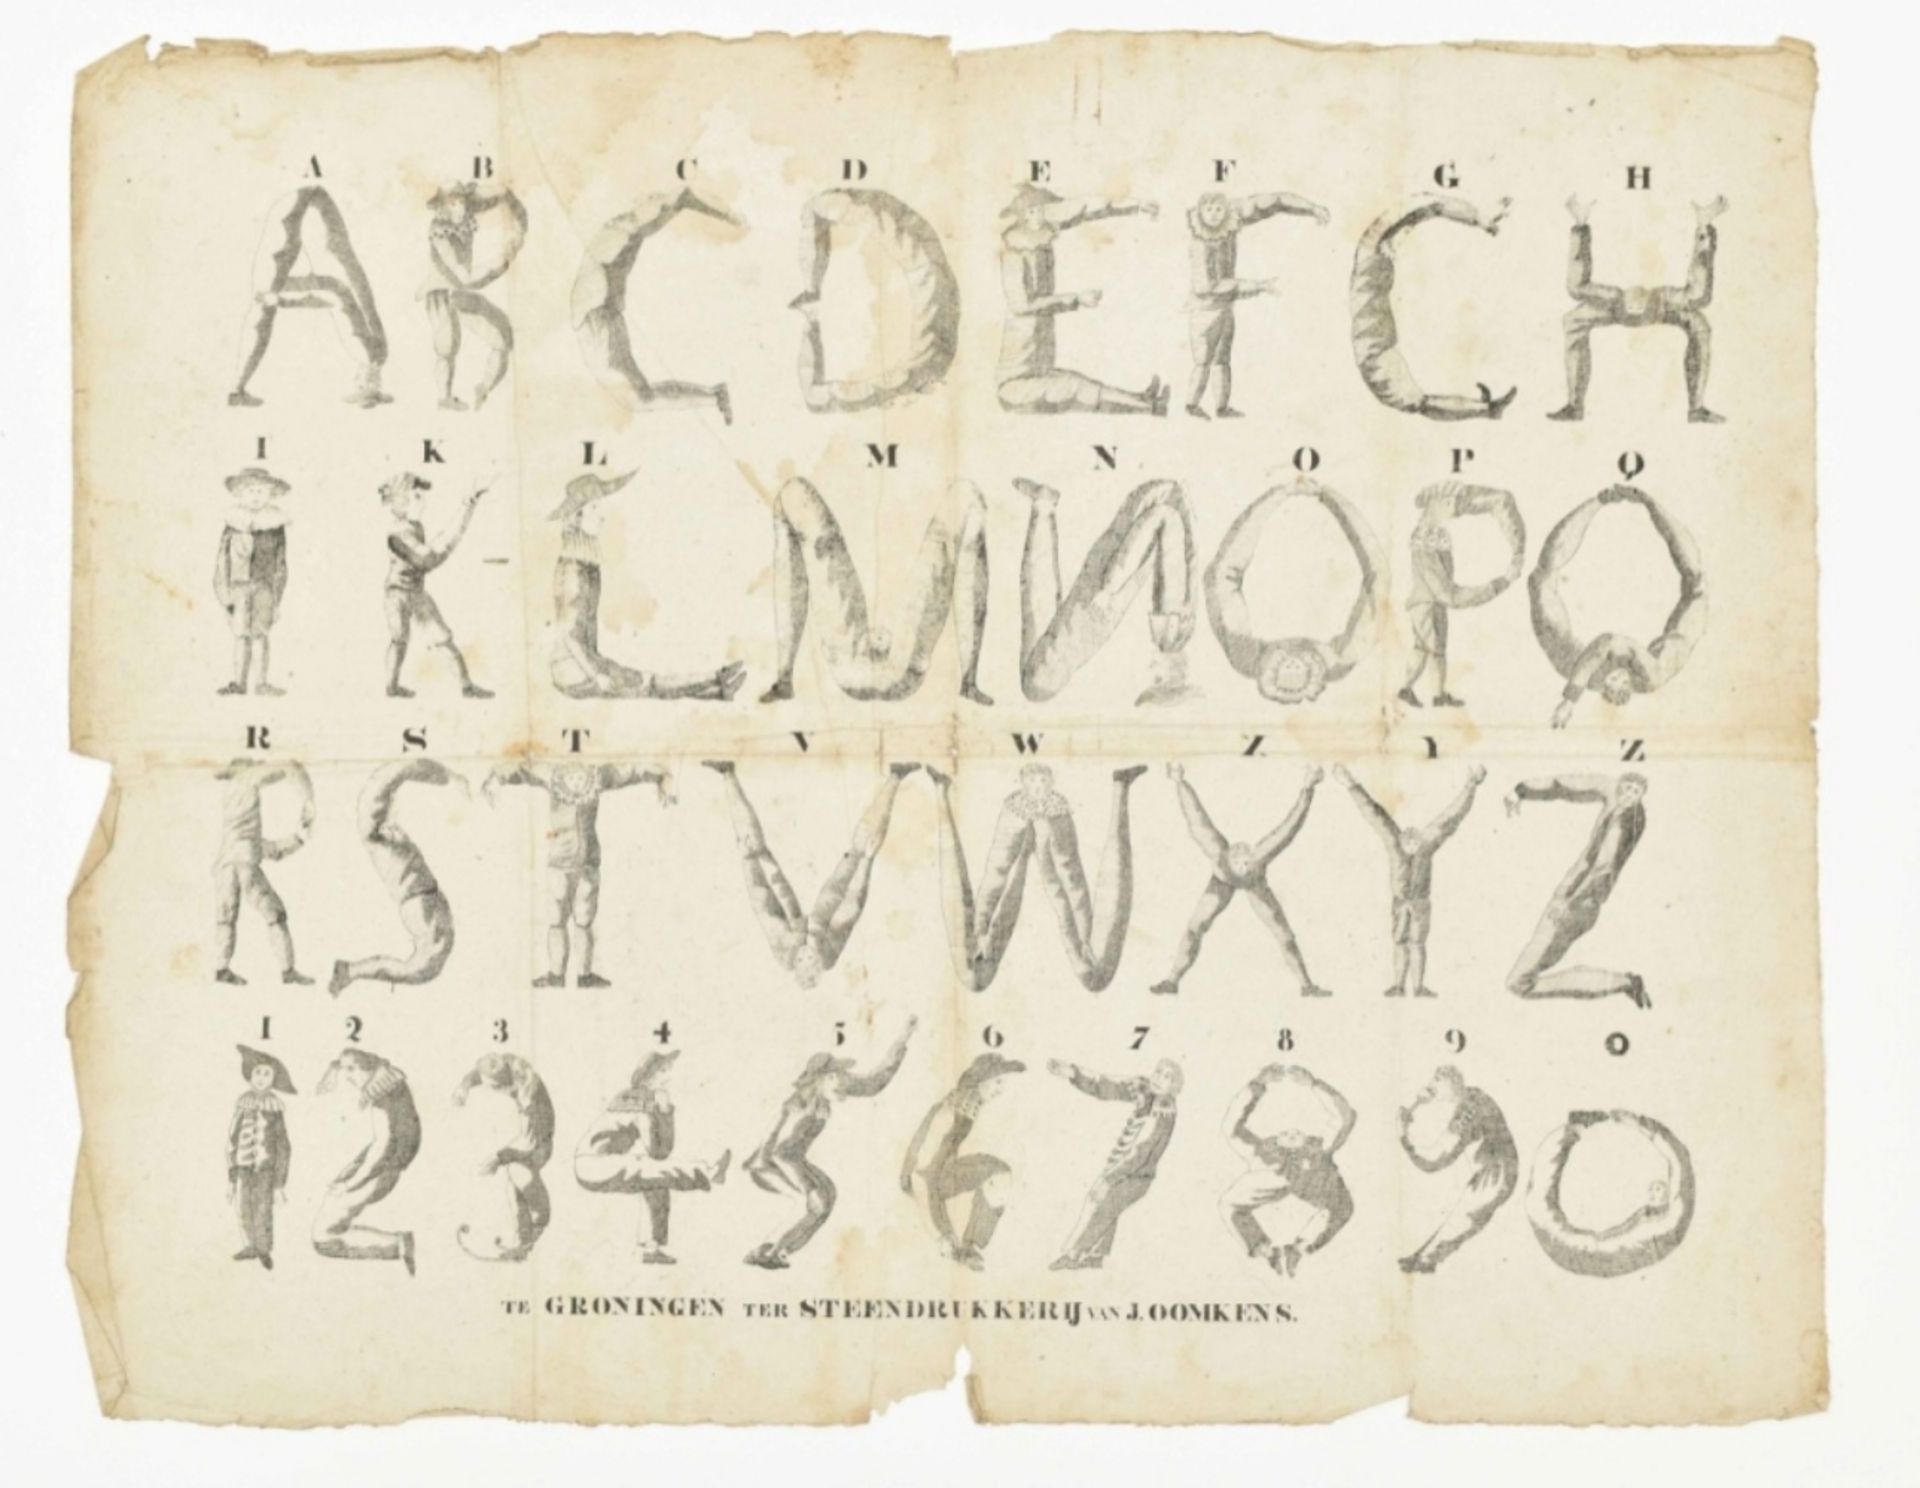 A B C D E F G H
I K L M N O P Q
R S T V W X Y Z
1 2 3 4 5 6 7 8 9 0
TE GRONINGEN TER STEENDRUKKERIJ VAN J. OOMKENS.